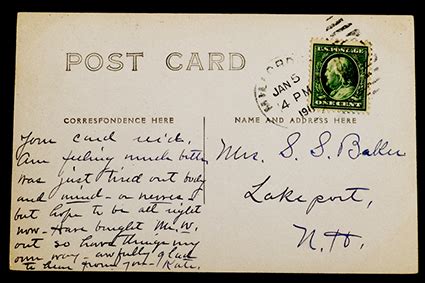 POST CARD
U.S. POSTAGE
ONE CENT
JAN 5
4 PM
CORRESPONDENCE HERE
NAME AND ADDRESS HERE
Your card rec'd.
Am feeling much better
was just tired out body
and mind - or nerves -
but hope to be all right
now - Have bought Mr. W.
out so have things my
own way - awfully glad
to hear from you - Kate.
Mrs. S. S. Baker
Lakeport,
N.H.